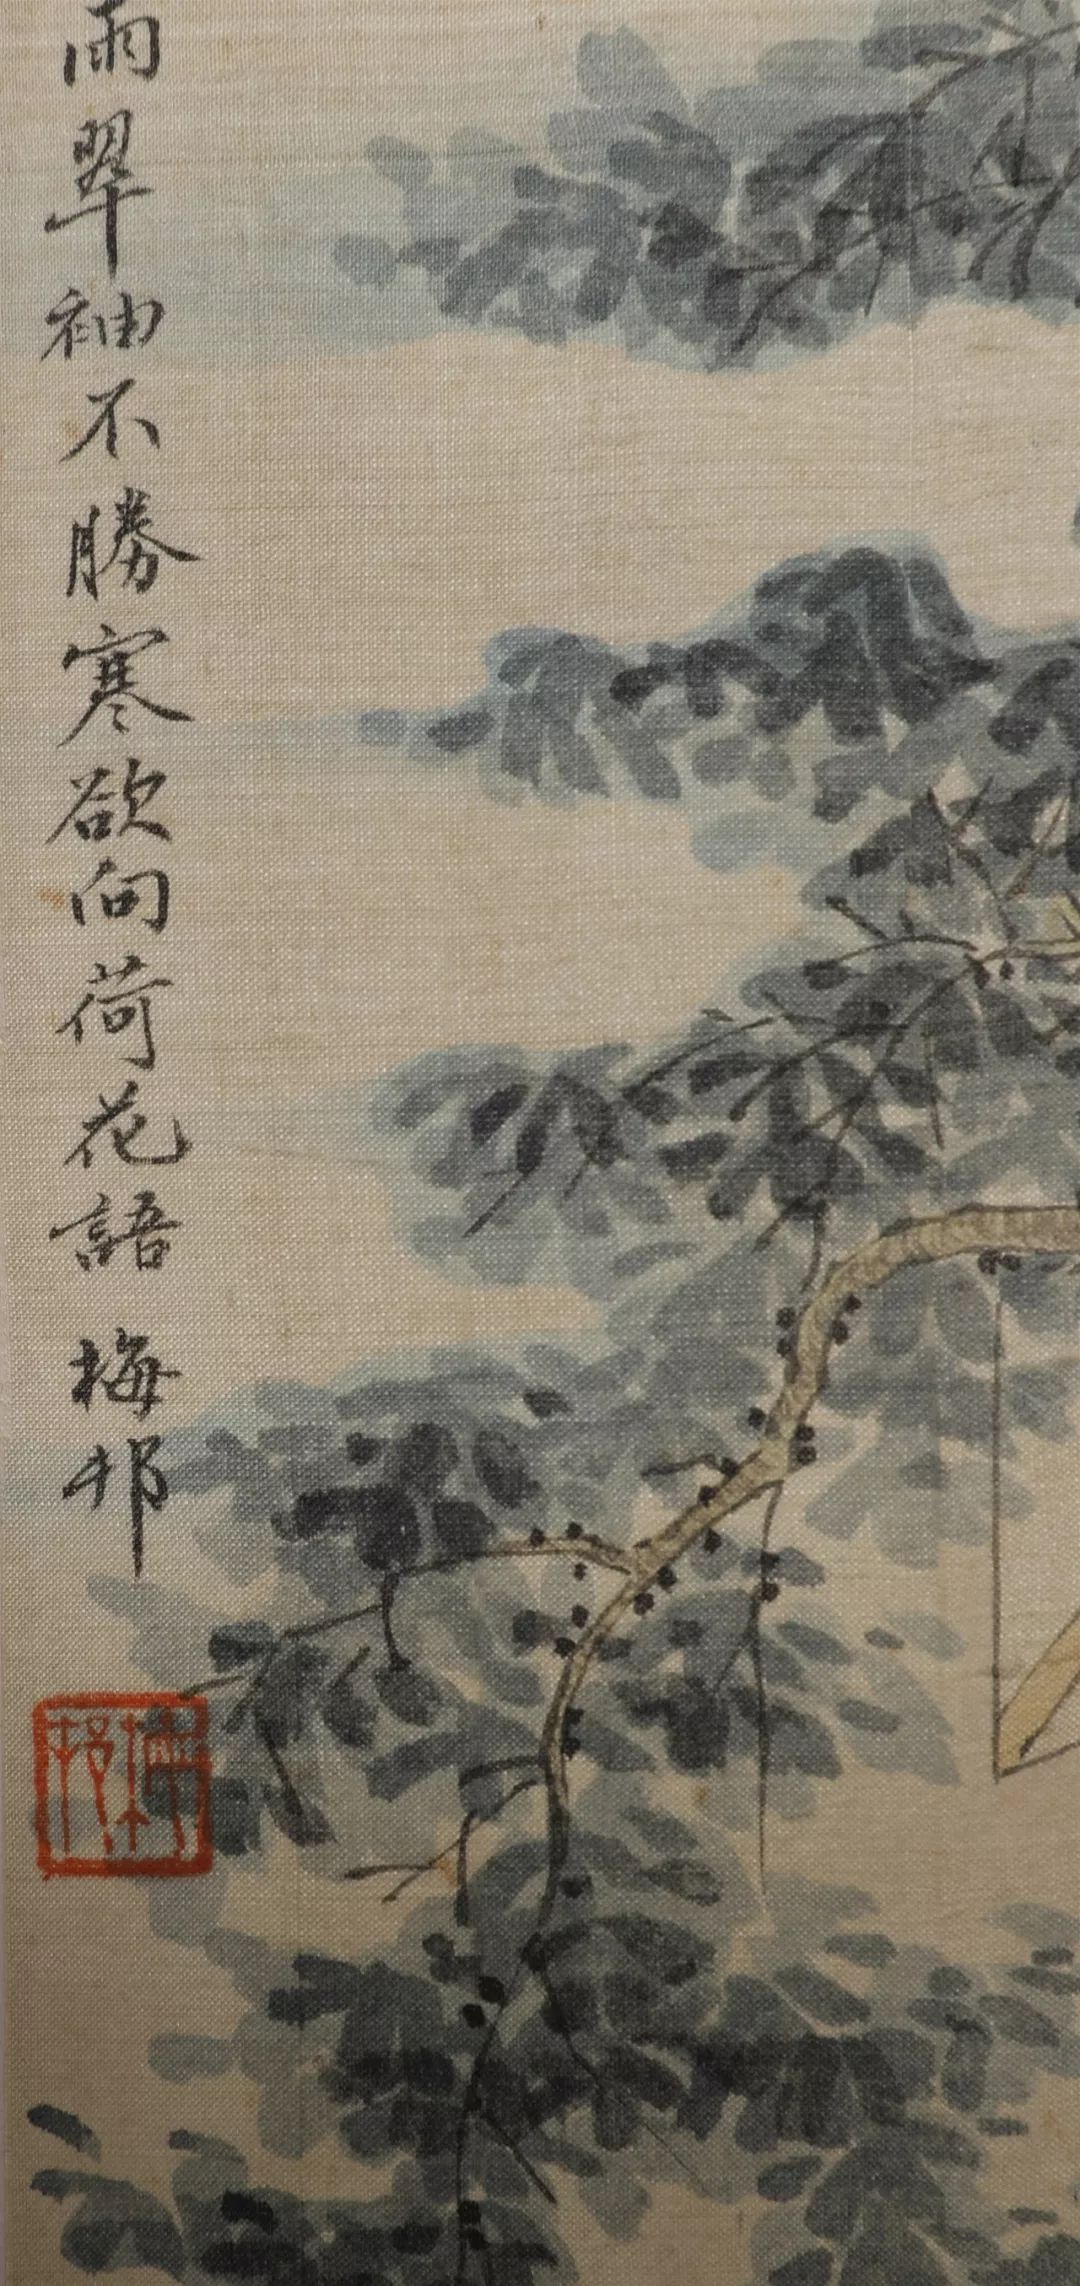 雨翠袖不勝寒欲向荷花語 梅邨
梅邨